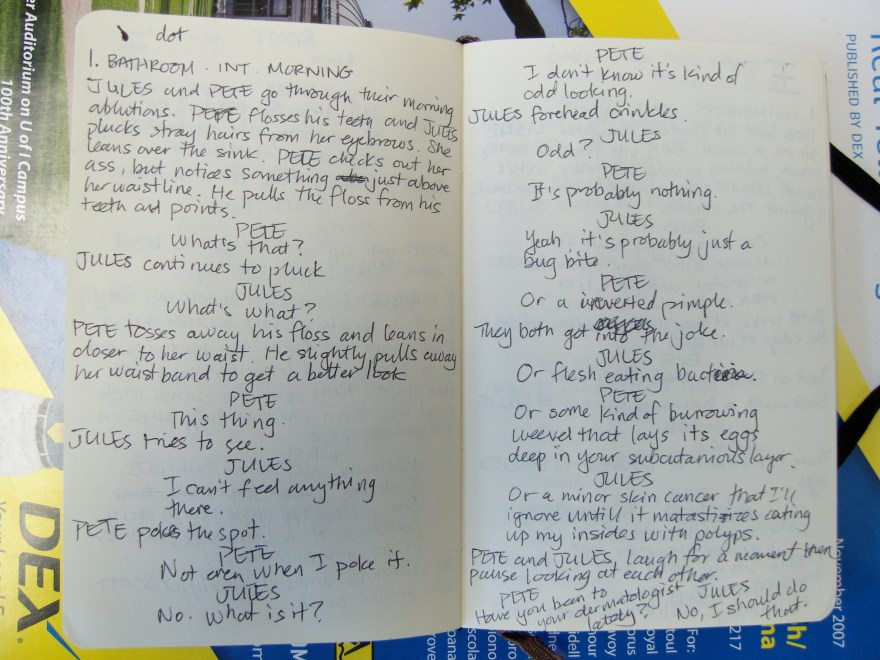 dot
1. BATHROOM. INT. MORNING
JULES and PETE go through their morning
ablutions. PETE flosses his teeth and JULES
plucks stray hairs from her eyebrows. She
leans over the sink. PETE checks out her
ass, but notices something just above
her waistline. He pulls the floss from his
teeth and points.
PETE
What's that?
JULES continues to pluck
JULES
What's what?
PETE tosses away his floss and leans in
closer to her waist. He slightly pulls away
her waistband to get a better look
PETE
This thing.
JULES tries to see.
JULES
I can't feel anything
there.
PETE pokes the spot.
PETE
Not even when I poke it.
JULES
No. What is it?
PETE
I don't know it's kind of
odd looking.
JULES forehead crinkles.
JULES
Odd?
PETE
It's probably nothing.
JULES
Yeah, it's probably just a
bug bite.
PETE
Or a inverted pimple.
They both get into the joke.
JULES
Or flesh eating bacteria.
PETE
Or some kind of burrowing
weevel that lays its eggs
deep in your subcutanious layer.
JULES
Or a minor skin cancer that I'll
ignore until it matastisizes eating
up my insides with polyps.
PETE and JULES, laugh for a moment then
pause looking at each other.
PETE
Have you been to
your dermatologist
lately?
JULES
No, I should do
that.
er Auditorium on U of I Campus
100th Anniversary
DEX
PUBLISHED BY DEX
November 2007